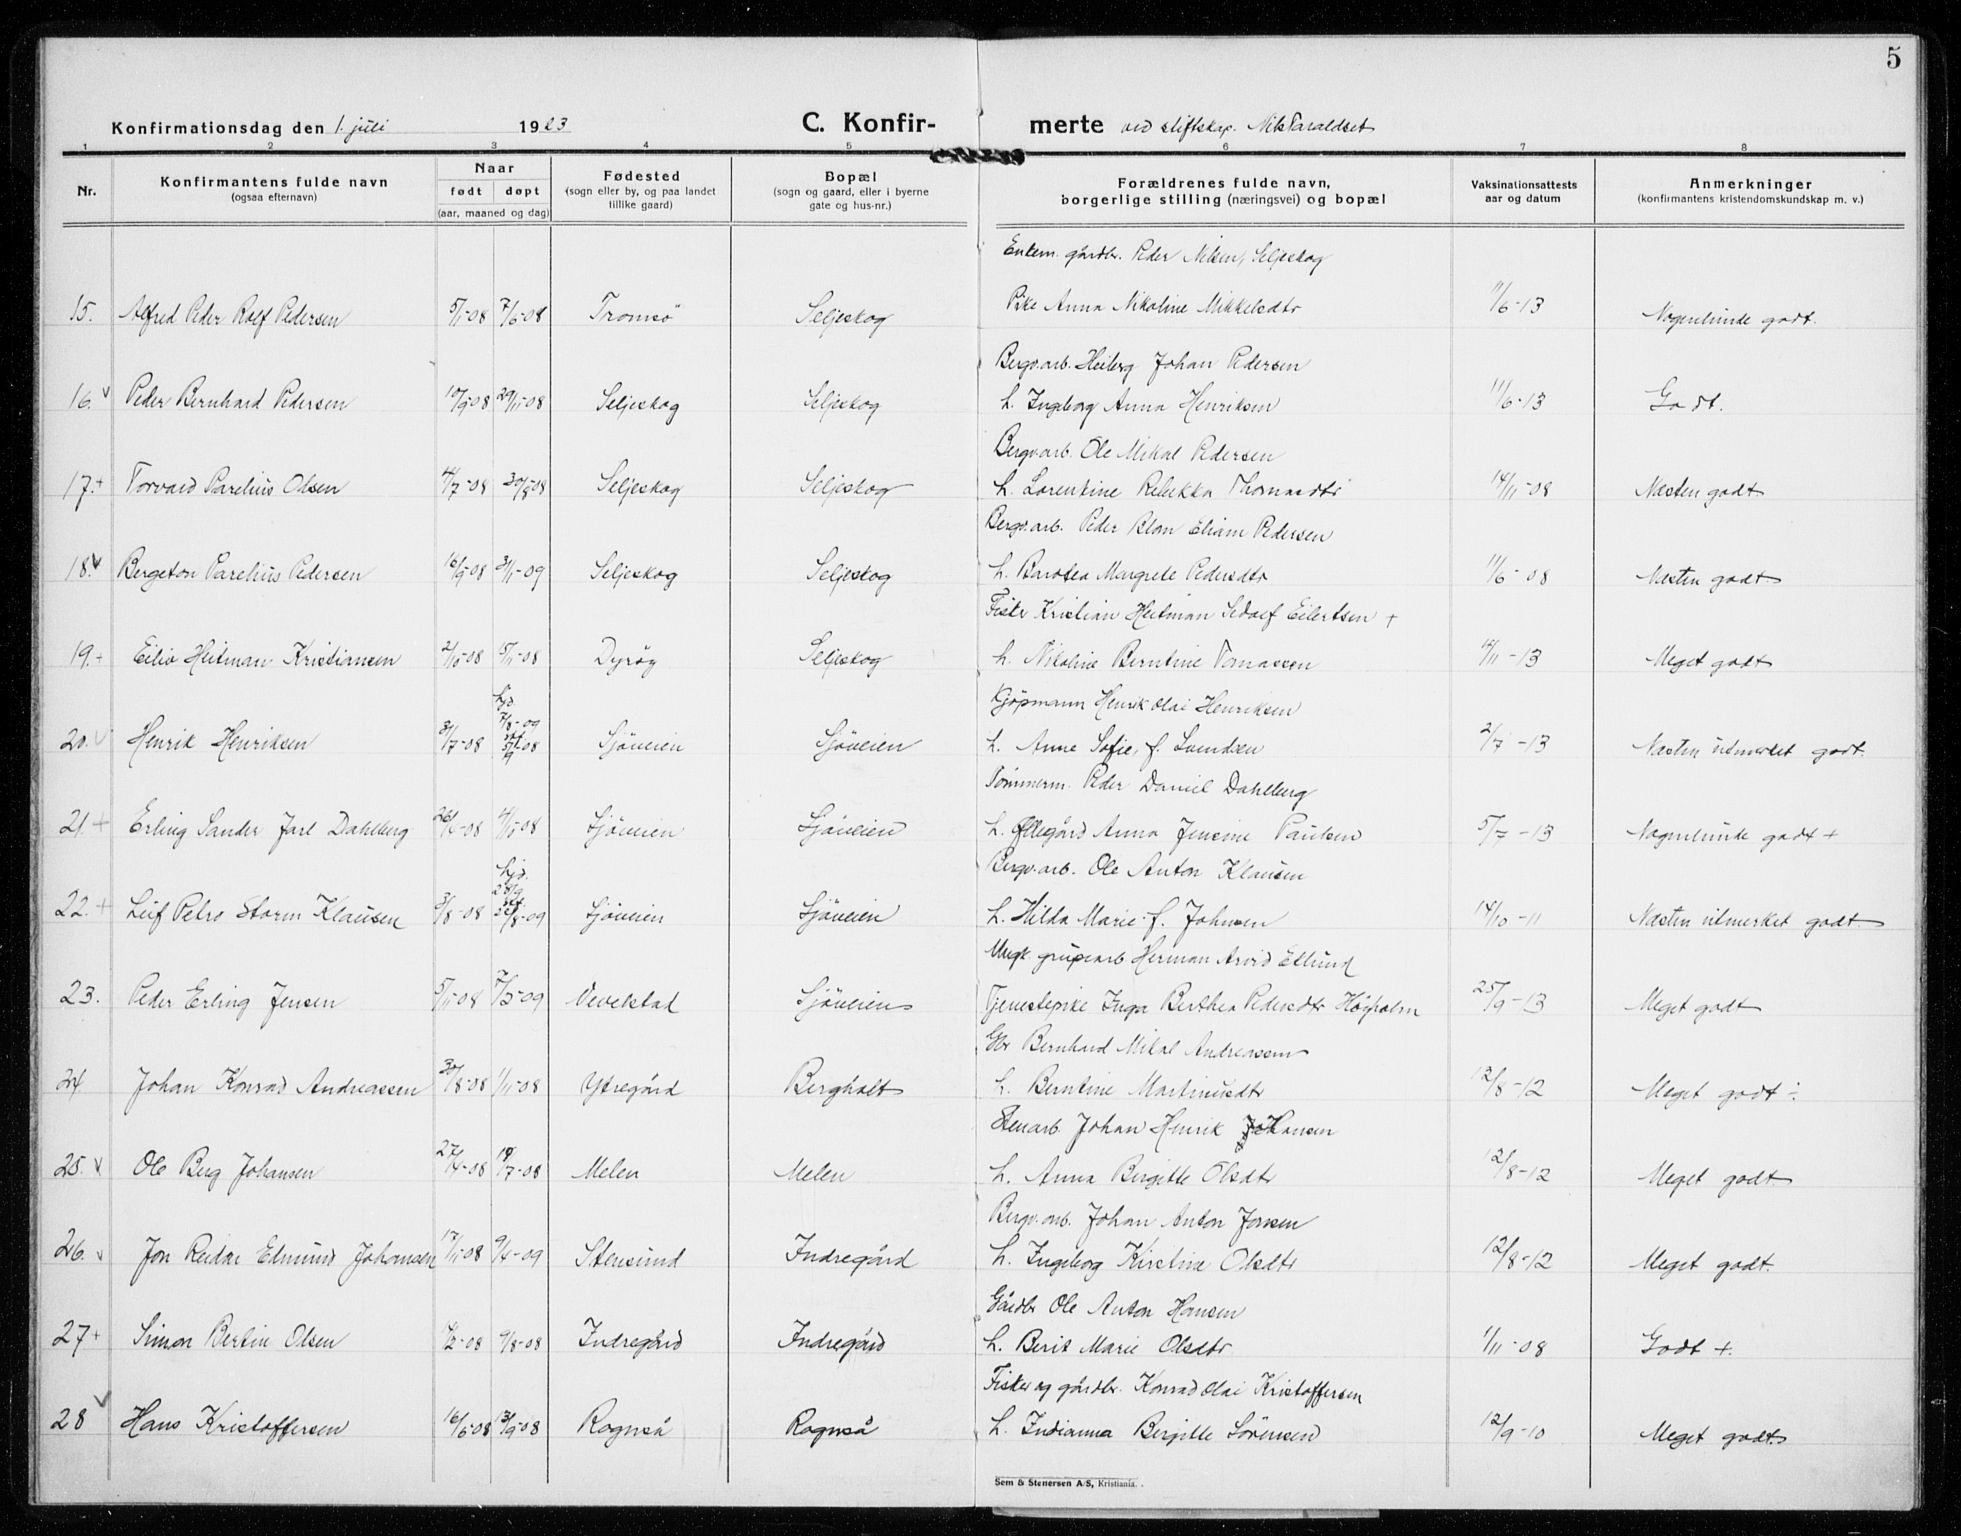 5
Konfirmationsdag den 1. juli 1923 C. Konfirmerte ved stiftskap. Nils Paraldset
1 2 3 4 5 6 7 8
Nr. Konfirmantens fulde navn (ogsaa efternavn) Naar født døpt (aar, maaned og dag) Fødested (sogn eller by, og paa landet tillike gaard) Bopæl (sogn og gaard, eller i byerne gate og hus-nr.) Forældrenes fulde navn, borgerlige stilling (næringsvei) og bopæl Vaksinationsattests aar og datum Anmerkninger (konfirmantens kristendomskundskap m. v.)
Enkem. gårdbr. Peder Nilsen, Seljeskog
15. Alfred Peder Rolf Pedersen 5/1-08 7/6-08 Tromsö Seljeskog Pike Anna Nikoline Mikkelsdtr 11/6-13 Nogenlunde godt.
Bergv.arb. Heiberg Johan Pedersen
16. v Peder Bernhard Pedersen 10/9-08 29/11-08 Seljeskog Seljeskog h. Ingeborg Anna Henriksen 11/6-13 Godt.
Bergv.arb. Ole Mikal Pedersen
17.+ Torvard Parelius Olsen 4/7-08 30/8-08 Seljeskog Seljeskog h. Lorentine Rebekka Thomasdtr 14/11-08 Næsten godt
Bergv.arb. Peder Blom Eliam Pedersen
18.v Bergeton Parelius Pedersen 16/9-08 3/1-09 Seljeskog Seljeskog h. Barotea Margrete Pedersdtr 11/6-08 Næsten godt
Fisker Kristian Heitman Sedolf Eilertsen +
19.+ Eiliv Heitman Kristiansen 2/10-08 5/11-08 Dyröy Seljeskog h. Nikoline Berntine Tomassen 4/11-13 Meget godt
Kjöpmann Henrik Olai Henriksen
20. v Henrik Henriksen 31/7-08 hjd. 7/8-09 Sjöveien Sjöveien h. Anne Sofie, f. Svendsen 2/7-13 Næsten utmerket godt.
Tömmerm. Peder Daniel Dahlberg
21. + Erling Sander Jarl Dahlberg 26/4-08 Sjöveien Sjöveien h. Ellegård Anna Jensine Paulsen 5/7-13 Nogenlunde godt +
Bergv.arb. Ole Anton Klausen
22. + Leif Petro Storm Klausen 3/8-08 hjd. 28/9 Sjöveien Sjöveien h. Hilda Marie f. Johnsen 14/10-11 Næsten utmerket godt.
Ungk. grubearb Herman Arvid Edlund
23. Peder Erling Jensen 5/11-08 7/3-09 Vevelstad Sjöveien Tjenestepike Inga Berthea Pedersdtr Högholm 25/9-13 Meget godt
Gbr Bernhard Mikal Andreassen
24. Johan Konrad Andreassen 30/8-08 1/11-08 Ytregård Bergholt h. Berntine Martinusdtr 12/8-12 Meget godt ÷
Stenarb. Johan Henrik Johansen
25. v Ole Berg Johansen 27/4-08 19/7-08 Melen Melen h. Anna Birgitte Olsdtr 12/8-12 Meget godt
Bergv.arb. Johan Anton Jonsen
26. v Jon Reidar Edmund Johansen 17/11-08 9/4-09 Stensund Indregård h. Ingeborg Kirstine Olsdtr 12/8-12 Meget godt.
Gårdbr Ole Anton Hansen
27 + Simon Bertin Olsen 7/2-08 9/8-08 Indregård Indregård h. Berit Marie Olsdtr 1/11-08 Godt +.
Fisker og gårdbr. Konrad Olai Kristoffersen
28 v Hans Kristoffersen 16/5-08 13/9-08 Rognså Rognså h. Indianna Bergitte Sörensen 12/9-10 Meget godt.
Sem & Stenersen A/S, Kristiania.